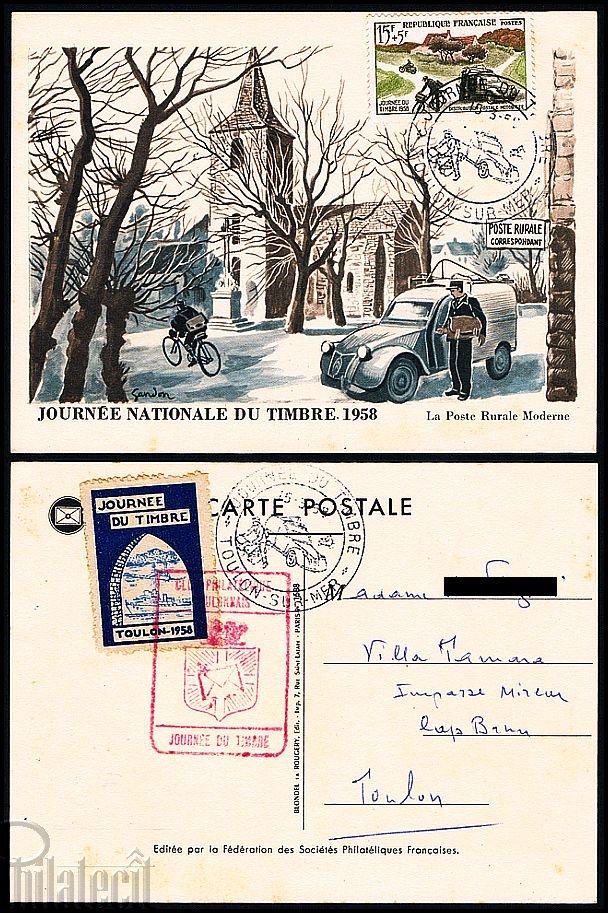 15F+5F
RÉPUBLIQUE FRANÇAISE POSTES
JOURNÉE DU TIMBRE 1958
DISTRIBUTION POSTALE MOTORISÉE
TOULON-SUR-MER
POSTE RURALE
CORRESPONDANT
Gandon
JOURNÉE NATIONALE DU TIMBRE. 1958
La Poste Rurale Moderne
CARTE POSTALE
JOURNEE
DU TIMBRE
TOULON-1958
JOURNEE DU TIMBRE
TOULON-SUR-MER
CLUB PHILATELIQUE
TOULONNAIS
JOURNÉE DU TIMBRE
Madame
Villa Tamara
Impasse
Cap Brun
Toulon
BLONDEL LA ROUGERY, Édit.-Imp. 7, Rue Saint-Lazare - PARIS
Editée par la Fédération des Sociétés Philatéliques Françaises.
Philatecil